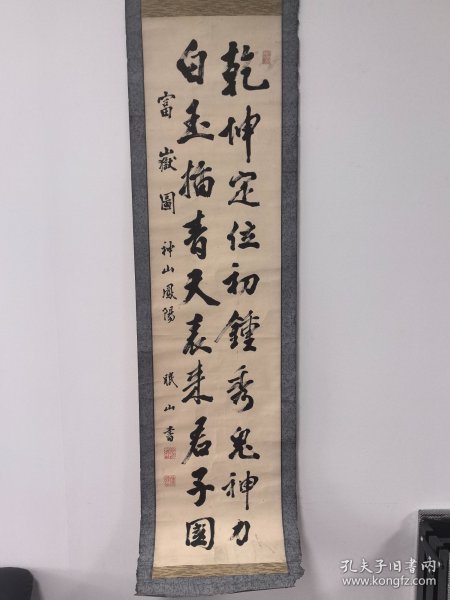 乾坤定位初鍾秀鬼神力
白玉插青天表来君子國
富嶽圖 神山鳳陽 珉山書
孔夫子旧书网
www.kongfz.com